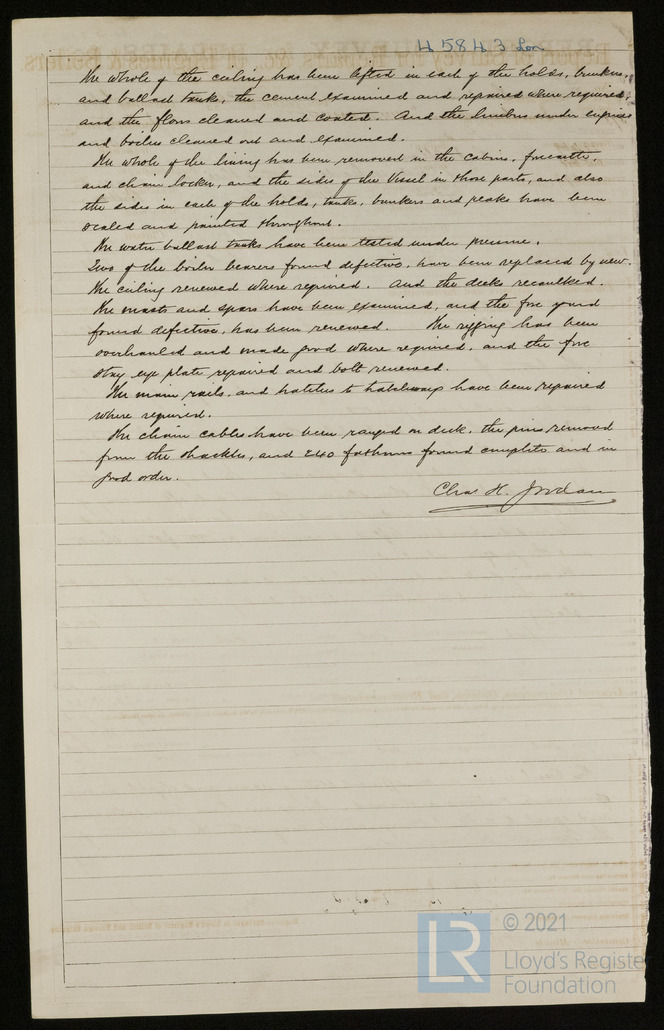 45843 Lon
The whole of the ceiling has been lifted in each of the holds, bunkers,
and ballast tank, the cement examined and repaired where required,
and the floors cleaned and coated. And the limbers under engines
and boilers cleaned out and examined.
The whole of the lining has been removed in the cabins, forecastle,
and chain locker, and the sides of the Vessel in those parts, and also
the sides in each of the holds, tanks, bunkers and peaks have been
scaled and painted throughout.
The water ballast tanks have been tested under pressure.
Two of the boiler bearers found defective, have been replaced by new.
The ceiling renewed where required. And the decks recaulked.
The masts and spars have been examined, and the fore yard
found defective, has been renewed. The rigging has been
overhauled and made good where required, and the fore
stay eye plate repaired and bolt renewed.
The main rails, and hatches to hatchways have been repaired
where required.
The chain cables have been ranged on deck, the pins removed
from the shackles, and 240 fathoms found complete and in
good order.
Chas. H. Jordan
LR
© 2021
Lloyd's Register
Foundation